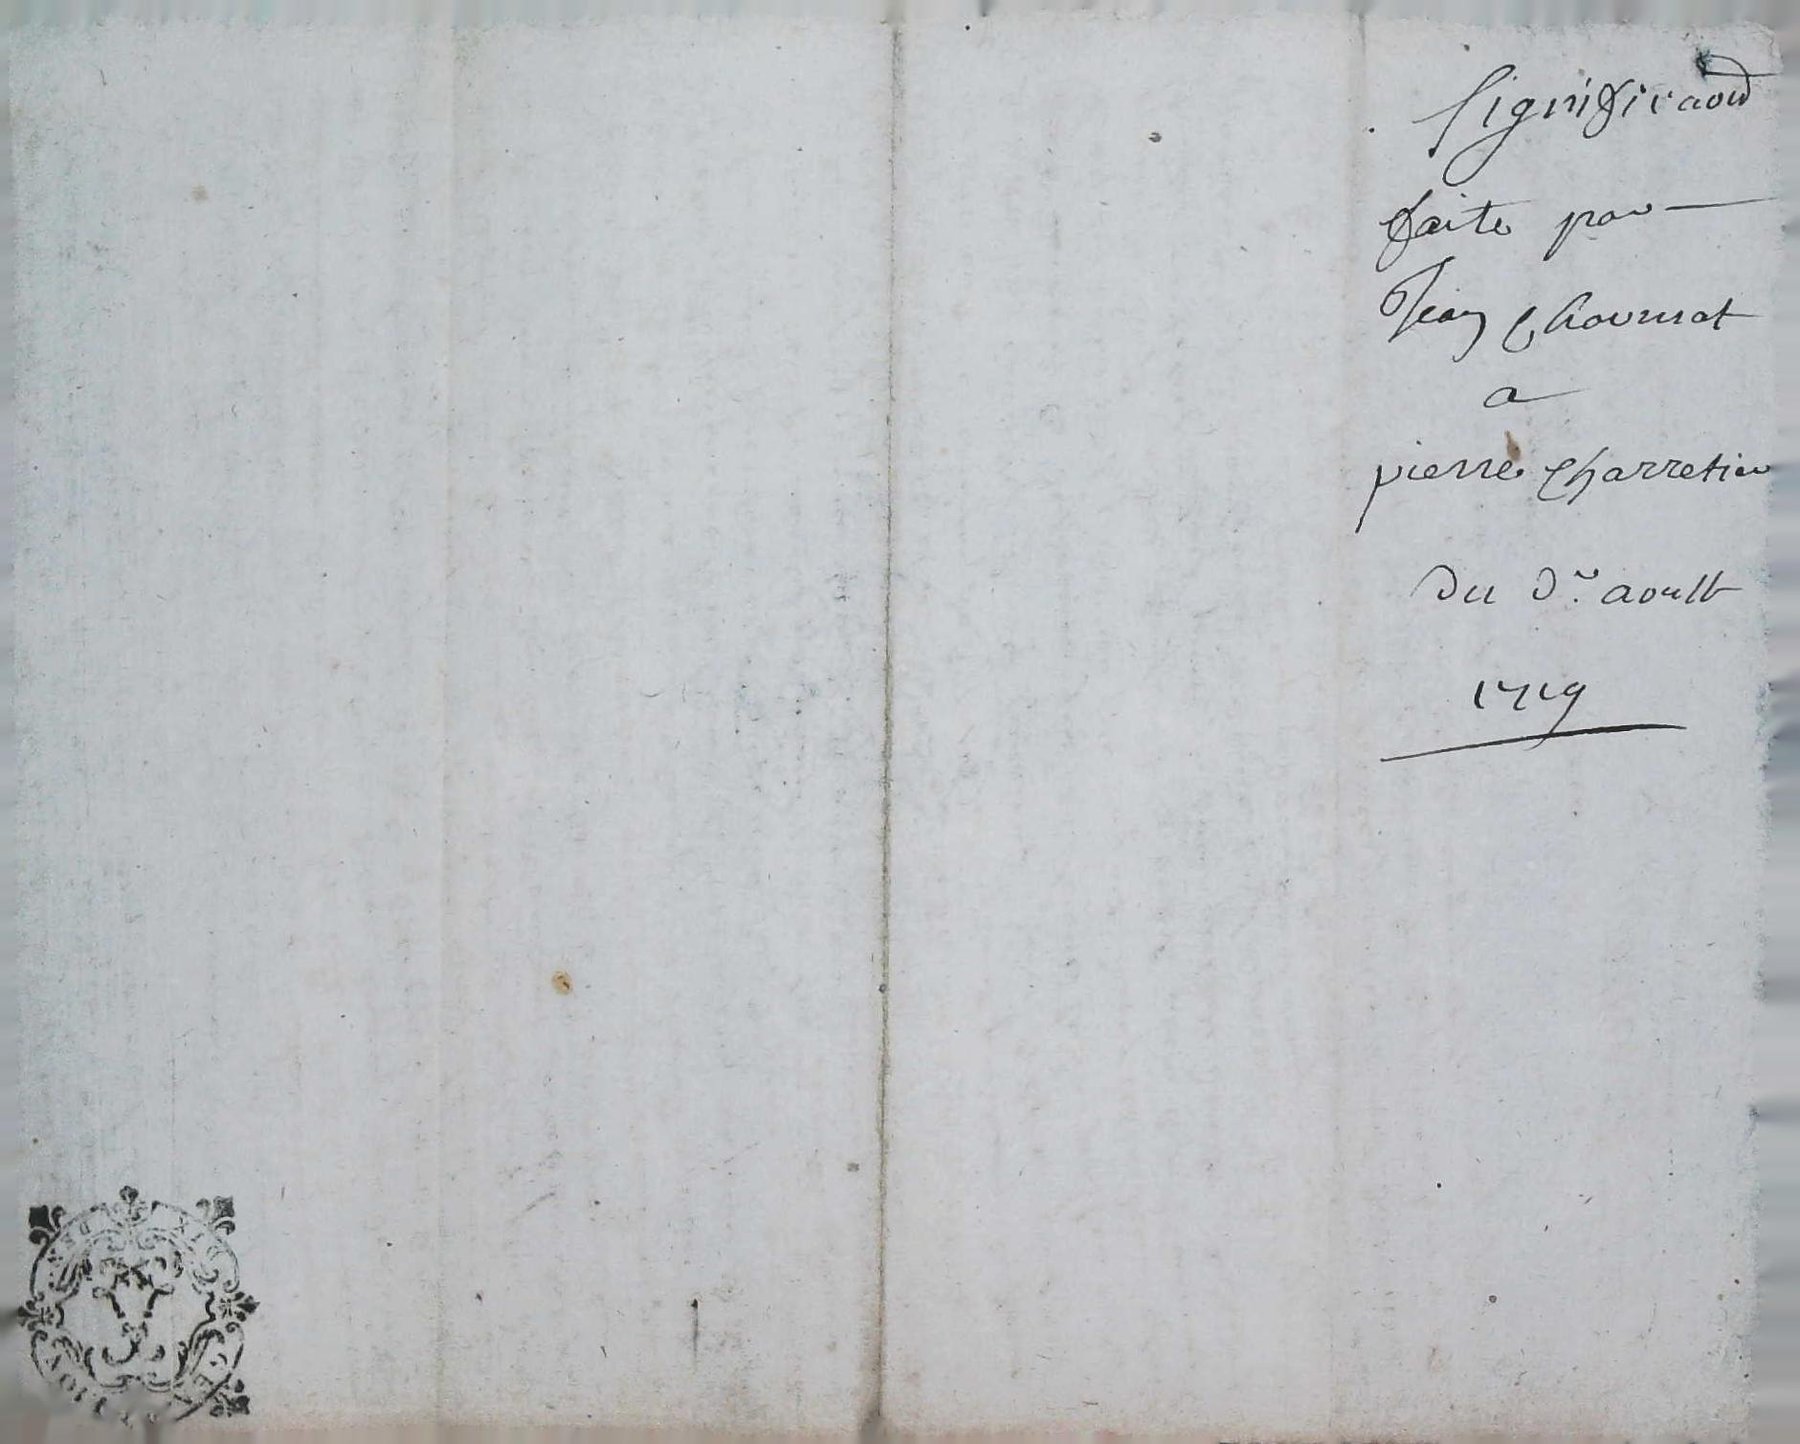 Signification
faite par
Jean Chournat
a
pierre Charretier
du d.r aoust
1719